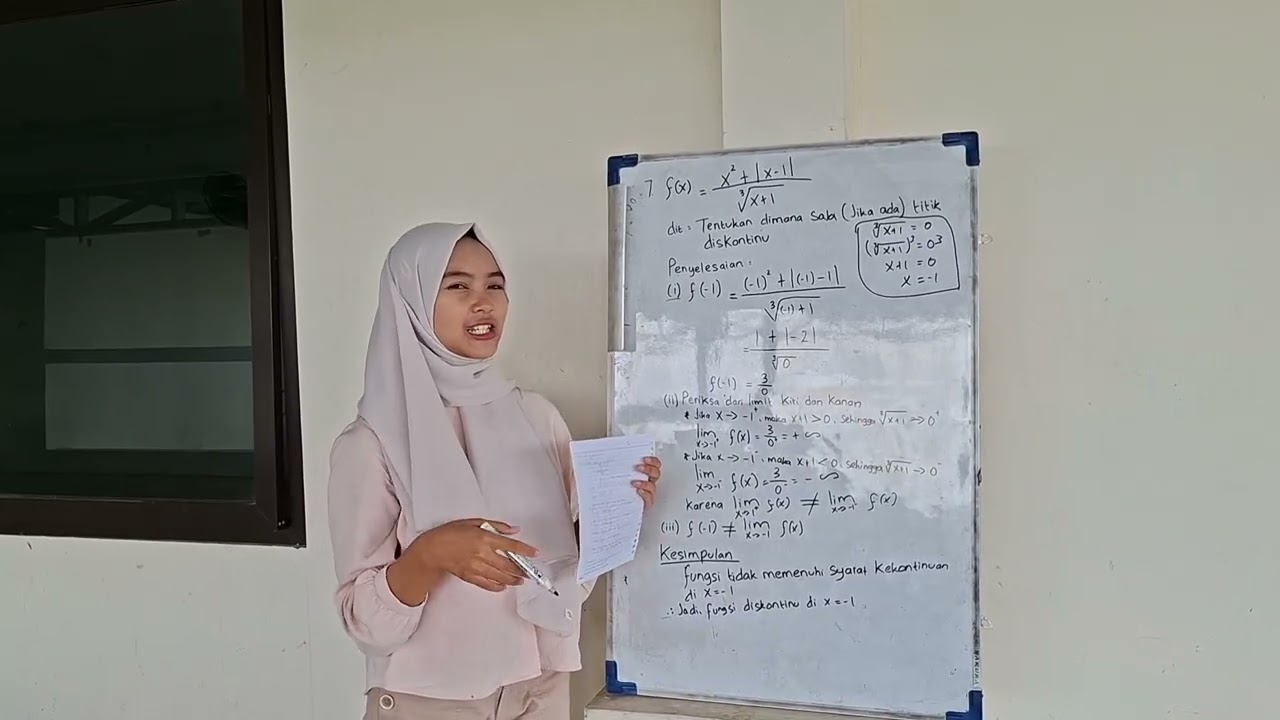 7 f(x) = x² + |x-1| / ∛x+1
dit = Tentukan dimana saja (Jika ada) titik
diskontinu
∛x+1 = 0
(∛x+1)³ = 0³
x+1 = 0
x = -1
Penyelesaian :
(i) f(-1) = (-1)² + |(-1) - 1| / ∛(-1) + 1
= 1 + |-2| / ∛0
f(-1) = 3/0
(ii) Periksa dari limit Kiri dan Kanan
* Jika x → -1⁺, maka x+1 > 0, Sehingga ∛x+1 → 0⁺
lim x→-1⁺ f(x) = 3/0⁺ = + ∞
* Jika x → -1⁻, maka x+1 < 0, Sehingga ∛x+1 → 0⁻
lim x→-1⁻ f(x) = 3/0⁻ = - ∞
karena lim x→-1⁺ f(x) ≠ lim x→-1⁻ f(x)
(iii) f(-1) ≠ lim x→-1 f(x)
Kesimpulan
fungsi tidak memenuhi syarat kekontinuan
di x = -1
∴ Jadi, fungsi diskontinu di x = -1